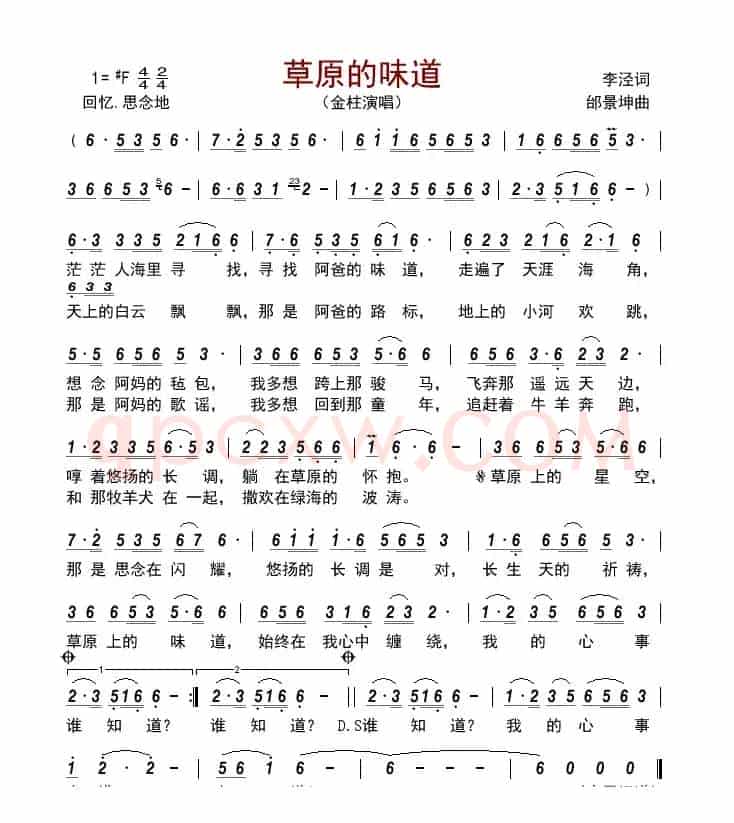 草原的味道
1=♯F 4/4 2/4
李泾词
回忆.思念地
（金柱演唱）
邰景坤曲
( 6 · 5 3 5 6 · | 7 · 2 5 3 5 6 · | 6 1 1 6 6 5 6 5 3 | 1 6 6 5 6 5 3 ·
3 6 6 5 3 5 6 – | 6 · 6 3 1 23 2 – | 1 · 2 3 5 6 5 6 3 | 2 · 3 5 1 6 6 – )
6 · 3 3 3 5 2 1 6 6 | 7 · 6 5 3 5 6 1 6 | 6 2 3 2 1 6 2 · 1 6
茫茫人海里寻 找，寻找阿爸的味道， 走遍了天涯海角，
6 3 3
天上的白云飘 飘，那是阿爸的路标， 地上的小河欢跳，
5 · 5 6 5 6 5 3 · | 3 6 6 6 5 3 5 · 6 | 6 5 6 3 · 6 2 3
想念阿妈的毡包， 我多想跨上那骏马， 飞奔那遥远天边，
那是阿妈的歌谣， 我多想回到那童年， 追赶着牛羊奔跑，
qpcxw.com
1 · 2 3 3 5 6 · 5 3 | 2 2 3 5 5 6 6 | 1 6 · 6 – | 3 6 6 5 3 5 · 6
哼着悠扬的长调，躺在草原的怀抱。 ※草原上的星空，
和那牧羊犬在一起，撒欢在绿海的波涛。
7 · 2 5 3 5 6 7 6 · | 6 1 1 · 6 5 6 5 3 | 1 · 6 5 6 5 2 3
那是思念在闪耀， 悠扬的长调是对，长生天的祈祷，
3 6 6 5 3 5 · 6 | 5 6 6 3 1 6 2 3 2 | 1 · 2 3 5 6 5 6
草原上的味道，始终在我心中缠绕，我的心事
1 2
2 · 3 5 1 6 6 – :‖ 2 · 3 5 1 6 6 – ‖ 2 · 3 5 1 6 6 | 1 · 2 3 5 6 5 6
谁知道？ 谁知道？D.S谁知道？我的心事
1 2 · 2 – | 5 6 1 6 – | 6 – – – | 6 0 0 0 ‖